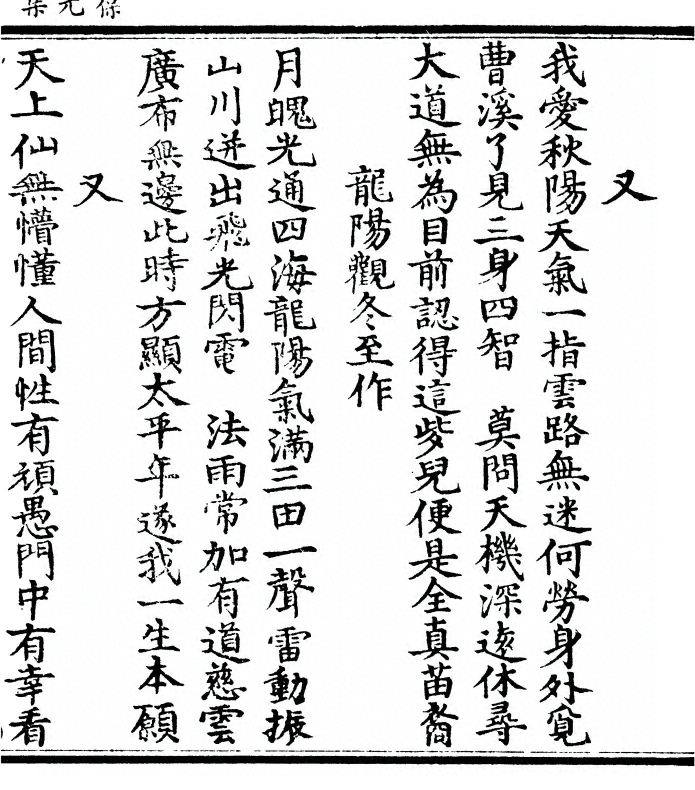 又
我愛秋陽天氣一指雲路無迷何勞身外覓
曹溪了見三身四智　莫問天機深遠休尋
大道無為目前認得這些兒便是全真苗裔
龍陽觀冬至作
月魄光通四海龍陽氣滿三田一聲雷動振
山川迸出飛光閃電　法雨常加有道慈雲
廣布無邊此時方顯太平年遂我一生本願
又
天上仙無懵懂人間性有頑愚門中有幸看